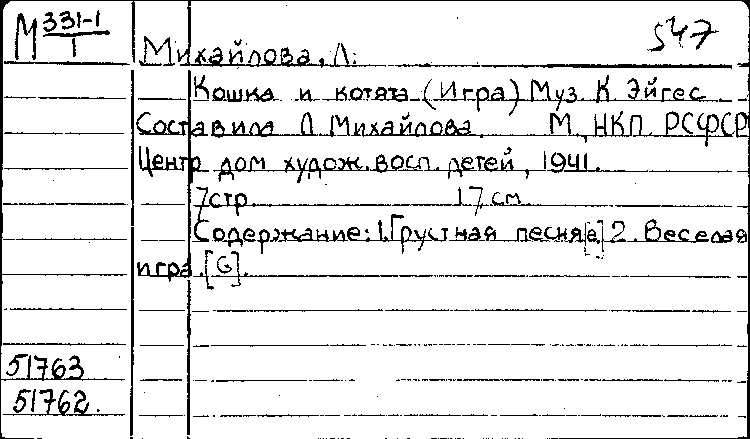 М 331-1/1
547
Михайлова, Л.
Кошка и котята (Игра) Муз. К Эйгес
Составила Л Михайлова. М, НКП РСФСР
Центр дом худож. восп. детей, 1941.
7стр. 17 см
Содержание: 1. Грустная песня[e] 2. Веселая
игра. [G].
51763
51762.